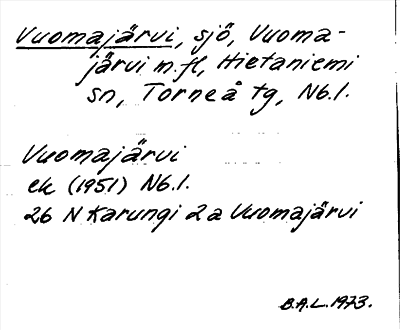 Vuomajärvi, sjö, Vuoma-
järvi m.fl, Hietaniemi
sn, Torneå tg, Nb.l.
Vuomajärvi
ek (1951) Nb.l.
26 N Karungi 2a Vuomajärvi
B.A.L. 1973.